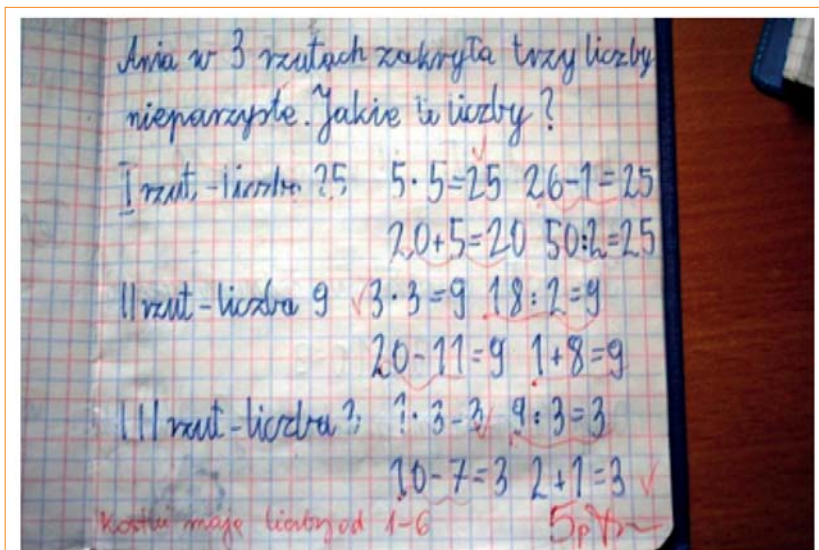 Ania w 3 rzutach zakryła trzy liczby
nieparzyste. Jakie to liczby?
I rzut, -liczba 25 5·5=25 26-1=25
20+5=20 50:2=25
II rzut - liczba 9 3·3=9 18:2=9
20-11=9 1+8=9
III rzut - liczba 3, 1·3=3 9:3=3
10-7=3 2+1=3
Kostki mają liczby od 1-6 5p